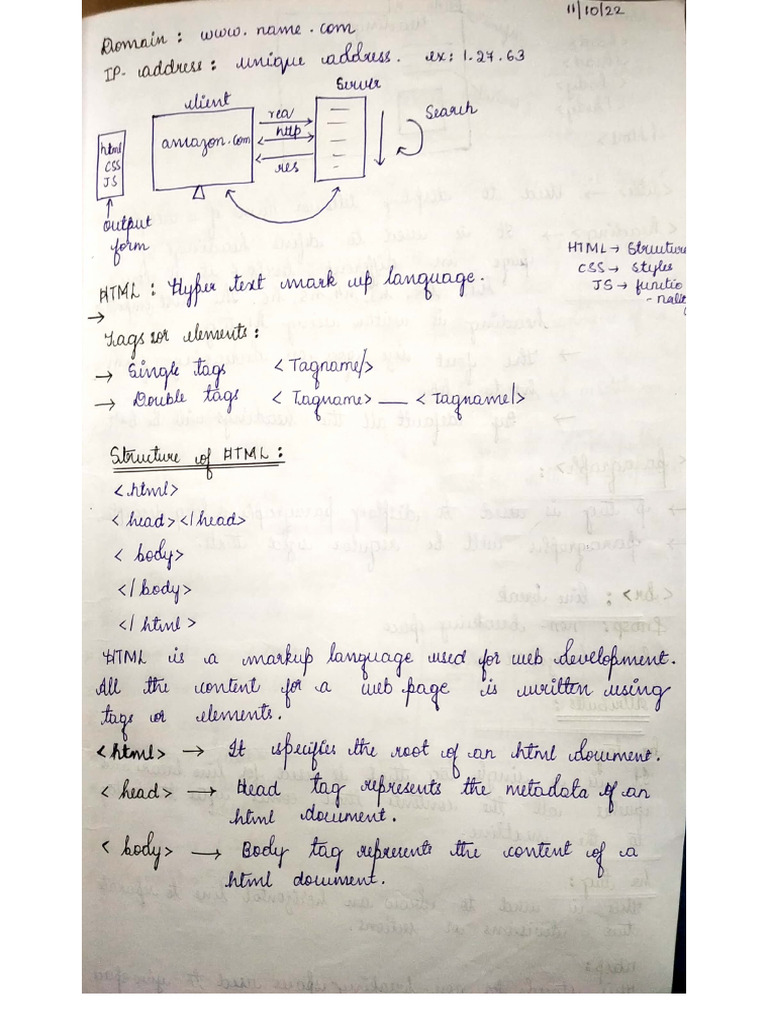 11/10/22
Domain : www.name.com
IP-address : unique address. ex: 1.27.63
client
Server
html
CSS
JS
amazon.com
req
http
res
Search
output
form
HTML → Structure
CSS → Styles
JS → functio
-nality
HTML : Hyper text mark up language.
→
Tags or elements :
→ Single tags <Tagname/>
→ Double tags <Tagname> __ <Tagname/>
Structure of HTML :
<html>
<head></head>
<body>
</body>
</html>
HTML is a markup language used for web development.
All the content for a web page is written using
tags or elements.
<html> → It specifies the root of an html document.
<head> → Head tag represents the metadata of an
html document.
<body> → Body tag represents the content of a
html document.